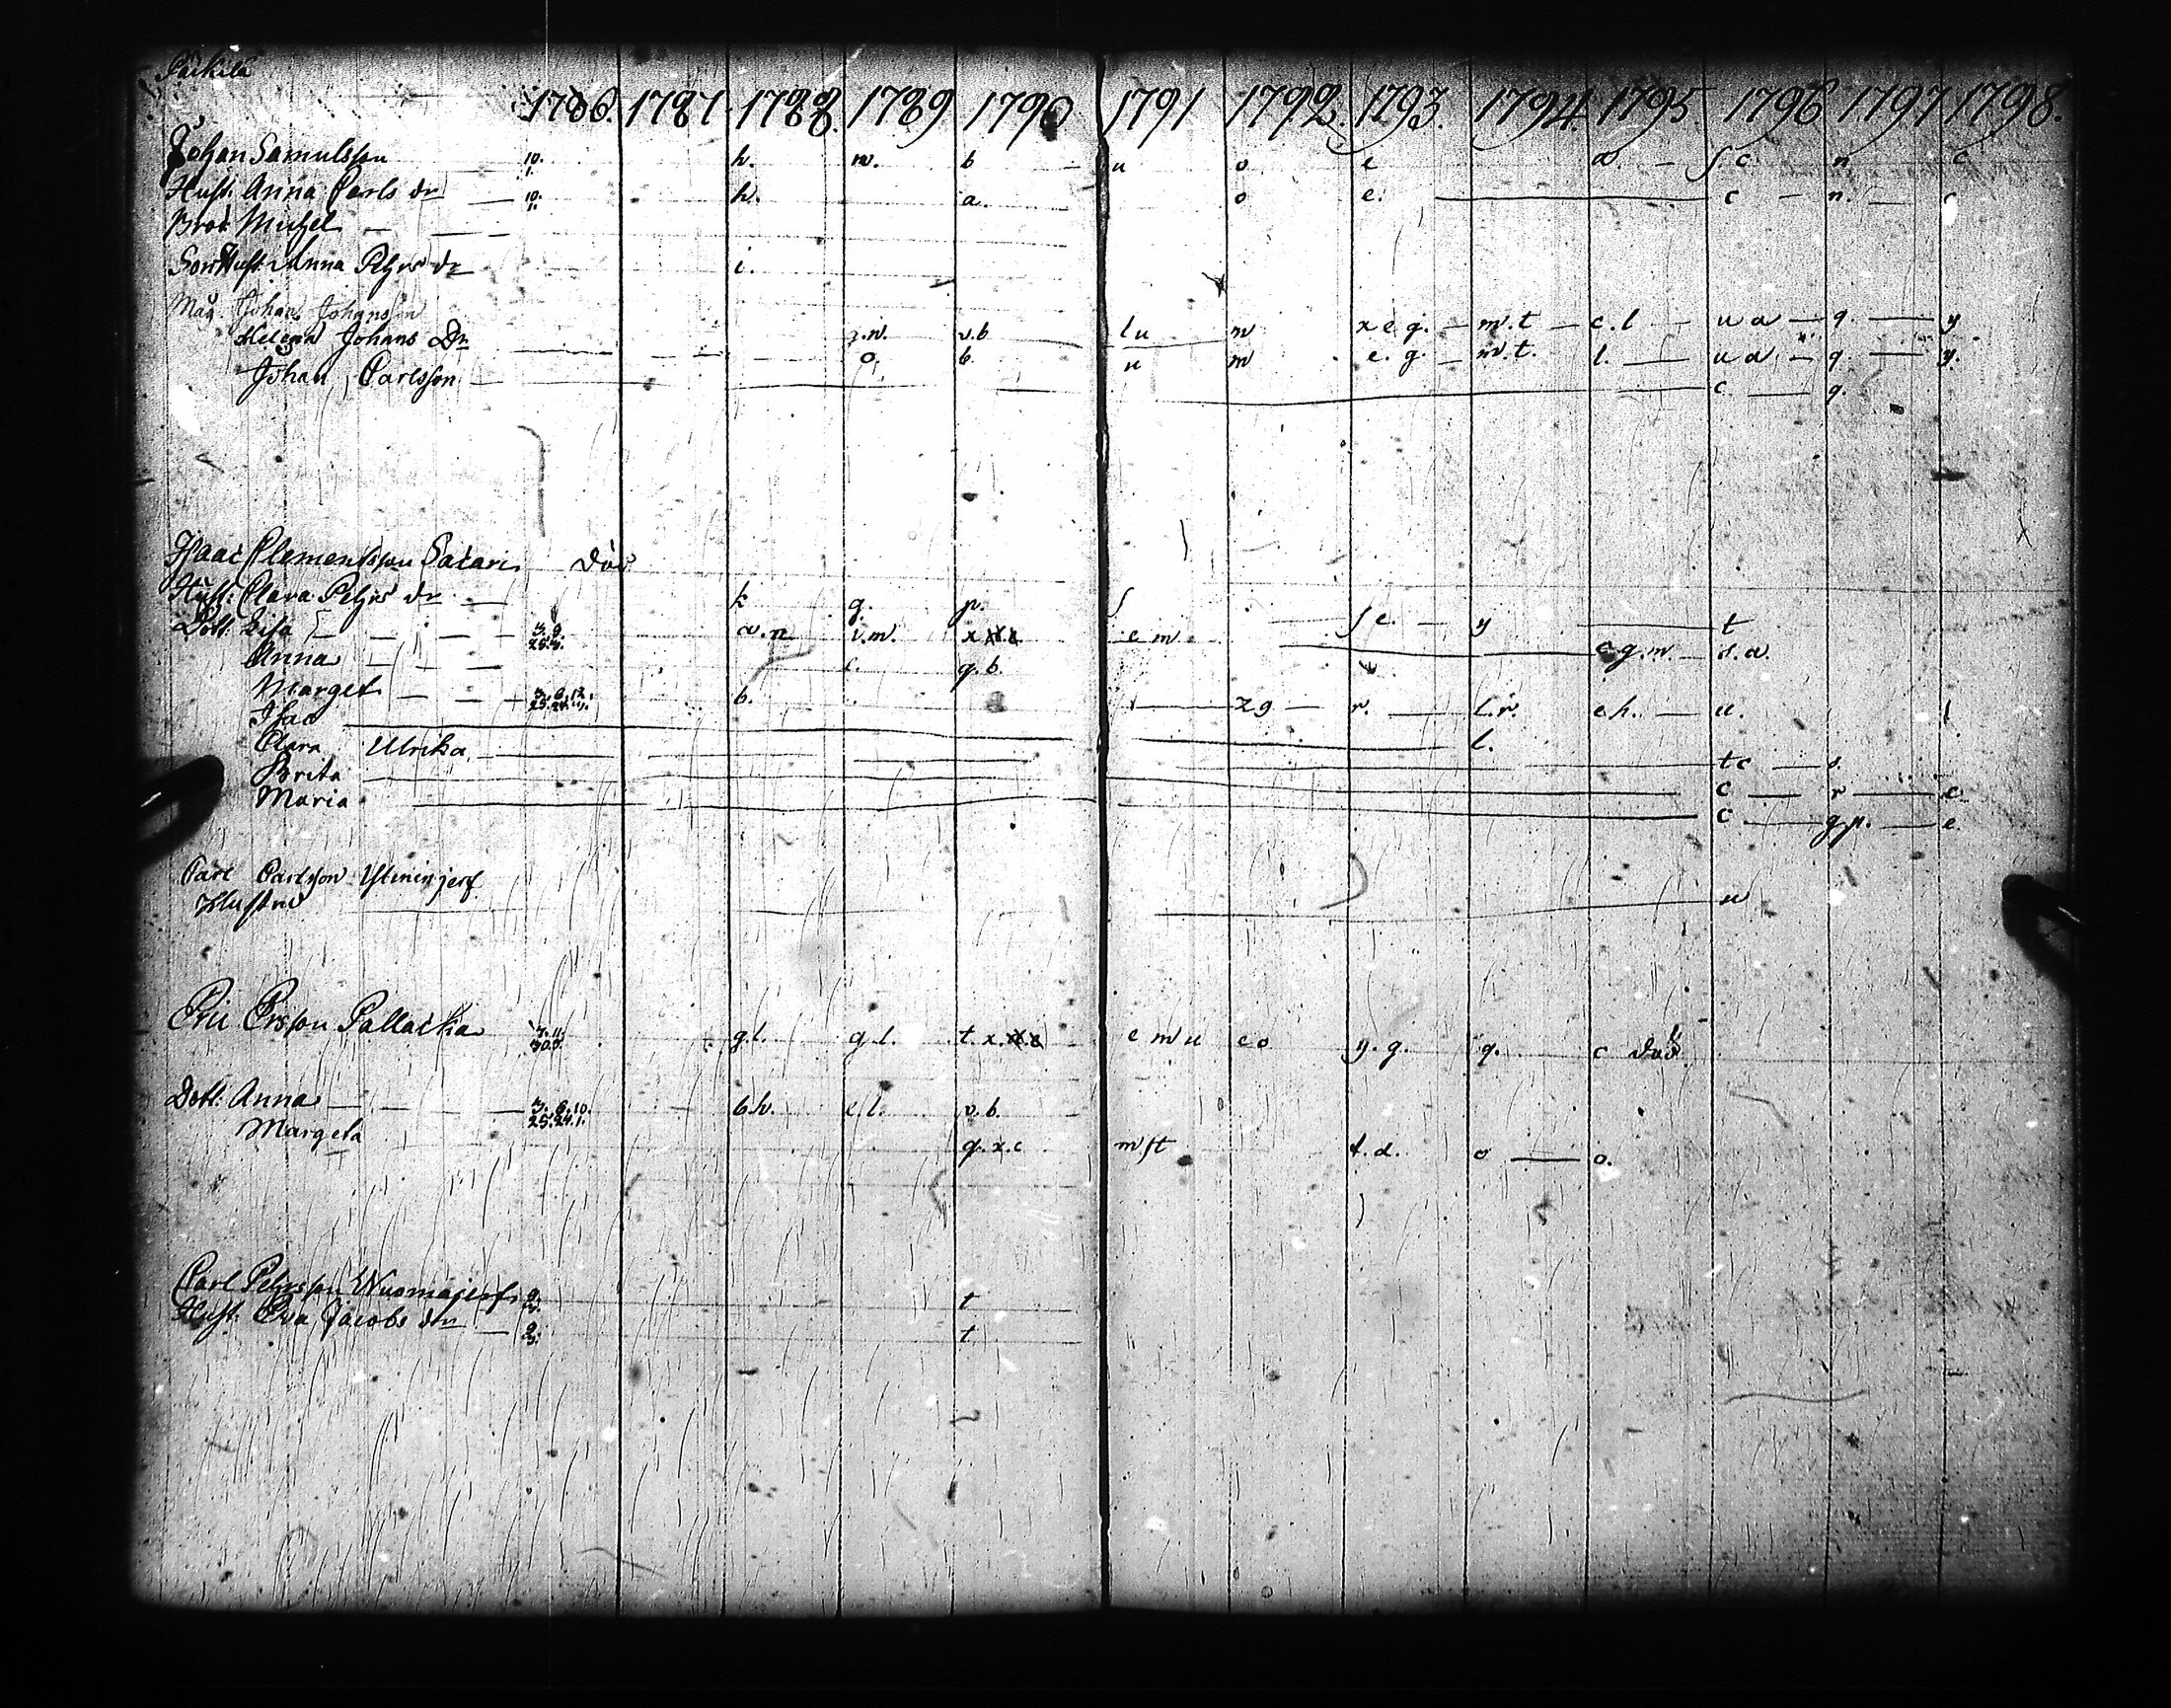 1786. 1787 1788. 1789 1790 1791 1792 1793. 1794. 1795 1796 1797 1798.
Johan Samulsson 10. 1. h. n. b u o e a. s c. n c
Hust: Anna Carls dr 10. 1. h. a. o e. c n. c
Brod. Michel
Son Hust. Anna Pehrs dr i.
Måg Johan Johansson
Helena Johans Dr z.n. v.b l u n x e g. m.t c.l u a q. y
o. b. u m e. g. m.t. l. u a q. y.
Johan Carlsson c. q.
Isaac Clementsson Satari död
Hust: Clara Pehrs dr k g. p. s
Dott: Lisa 3. 9. 25. a.n v.m. x e m s e. y t
Anna c. q.b. c g.m. s.a.
Marget 3. 6. 12. 25. 24. b. z g r. l.r. e h. u.
Isac l.
Clara Ulrika t c s.
Brita c r e.
Maria c g p. e.
Carl Carlsson
Hustru u
Eric Ersson Pallacka 3. 11. 30. g.l. g.l. t x. e m u c o y. g. q. c död
Dott: Anna 3. 6. 10. 25. 24. 1. b h. e l. v. b.
Margeta q. x. c m s t t. d. o o.
Carl Pehrsson Wuomajerf 9. t
Hust: Eva Jacobs dr 9. t